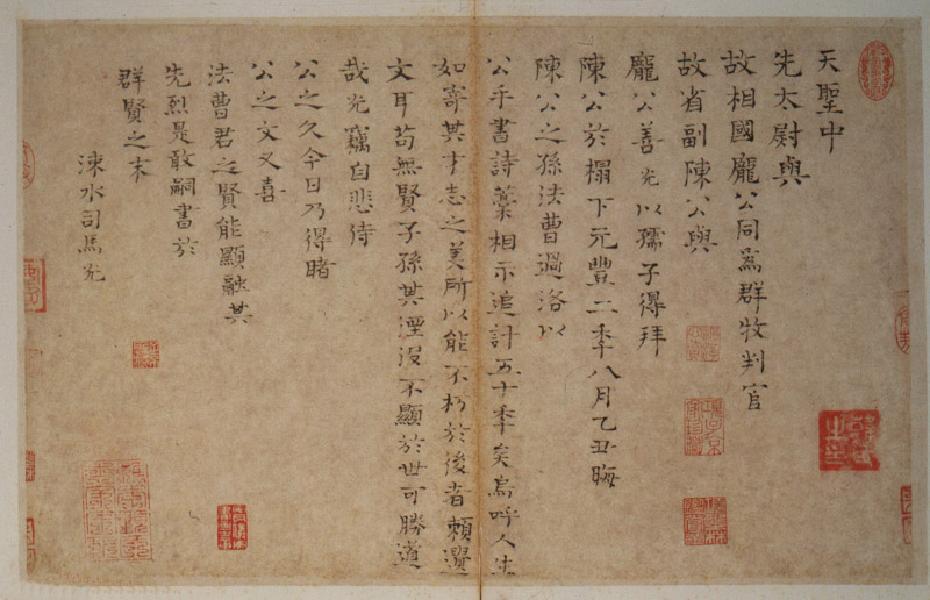 天聖中
先太尉與
故相國龐公同為群牧判官
故省副陳公與
龐公善光以孺子得拜
陳公於榻下元豐二年八月乙丑晦
陳公之孫法曹過洛以
公手書詩藁相示追計五十年矣嗚呼人生
如寄其才志之美所以能不朽於後者賴遺
文耳苟無賢子孫其湮沒不顯於世可勝道
哉光竊自悲侍
公之久今日乃得睹
公之文又喜
法曹君之賢能顯融其
先烈是敢嗣書於
群賢之末
涑水司馬光